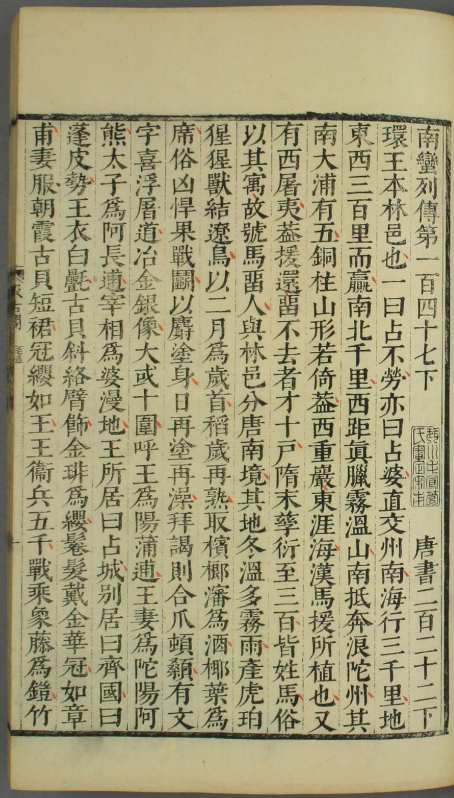 南蠻列傳第一百四十七下 唐書二百二十二下
環王本林邑也一曰占不勞亦曰占婆直交州南海行三千里地
東西三百里而贏南北千里西距真臘霧溫山南抵奔浪陀州其
南大浦有五銅柱山形若倚蓋西重巖東涯海漢馬援所植也又
有西屠夷蓋援還留不去者才十戶隋末孳衍至三百皆姓馬俗
以其寓故號馬留人與林邑分唐南境其地冬溫多霧雨產虎珀
猩猩獸結遼鳥以二月為歲首稻歲再熟取檳榔瀋為酒椰葉為
席俗凶悍果戰鬭以麝塗身日再塗再澡拜謁則合爪頓顙有文
字喜浮屠道冶金銀像大或十圍呼王為陽蒲逋王妻為陀陽阿
熊太子為阿長逋宰相為婆漫地王所居曰占城別居曰齊國曰
蓬皮勢王衣白㲲古貝斜絡臂飾金琲為纓鬈髮戴金華冠如章
甫妻服朝霞古貝短裙冠纓如王王衞兵五千戰乘象藤為鎧竹